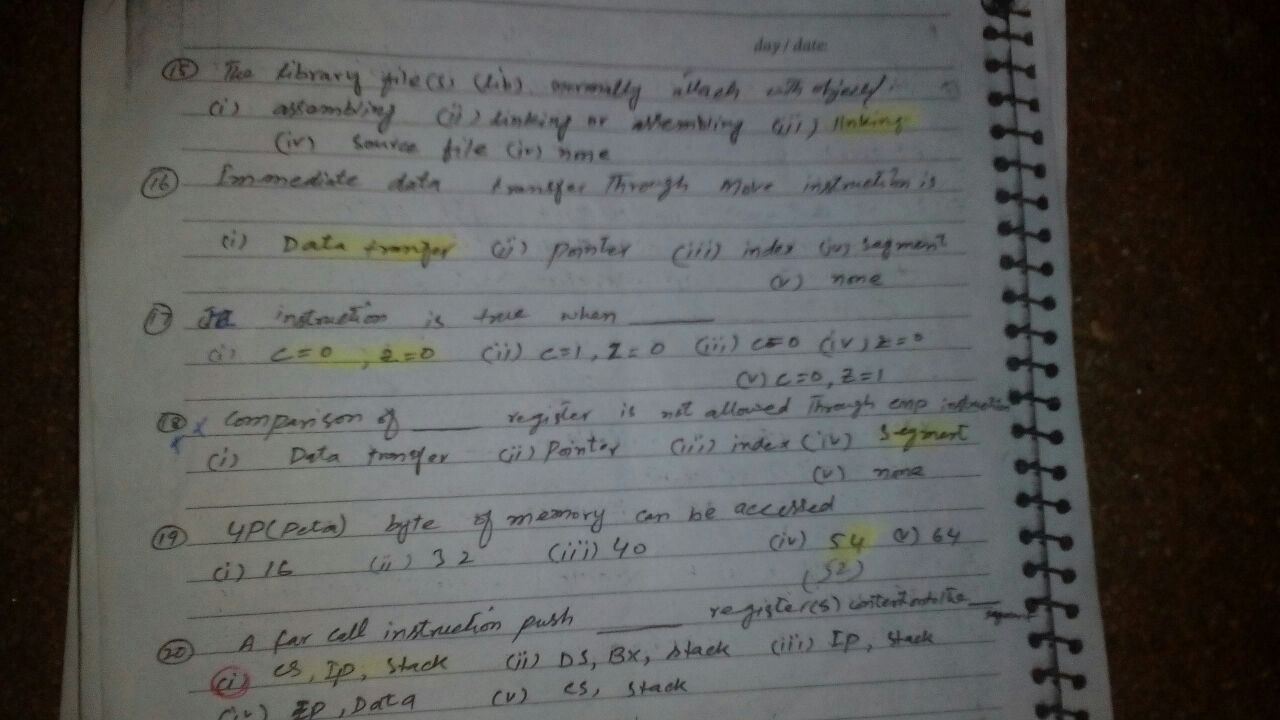 day / date
(15) The library file(s) (lib) normally attach with object
(i) assambling (ii) linking or assembling (iii) linking
(iv) source file (iv) none
(16) Immediate data transfer Through Move instruction is
(i) Data tranfer (ii) pointer (iii) index (iv) segment
(v) none
(17) JA instruction is true when ______
(i) C=0, Z=0 (ii) C=1, Z=0 (iii) C=0 (iv) Z=0
(v) C=0, Z=1
(18) x Comparison of ____ register is not allowed Through cmp instruction
(i) Data tranfer (ii) Pointer (iii) index (iv) segment
(v) none
(19) 4P(Peta) byte of memory can be accessed
(i) 16 (ii) 32 (iii) 40 (iv) 54 (v) 64
(52)
(20) A far call instruction push ______ register(s) content
(i) CS, IP, Stack (ii) DS, BX, stack (iii) IP, stack
(iv) IP, Data (v) CS, stack